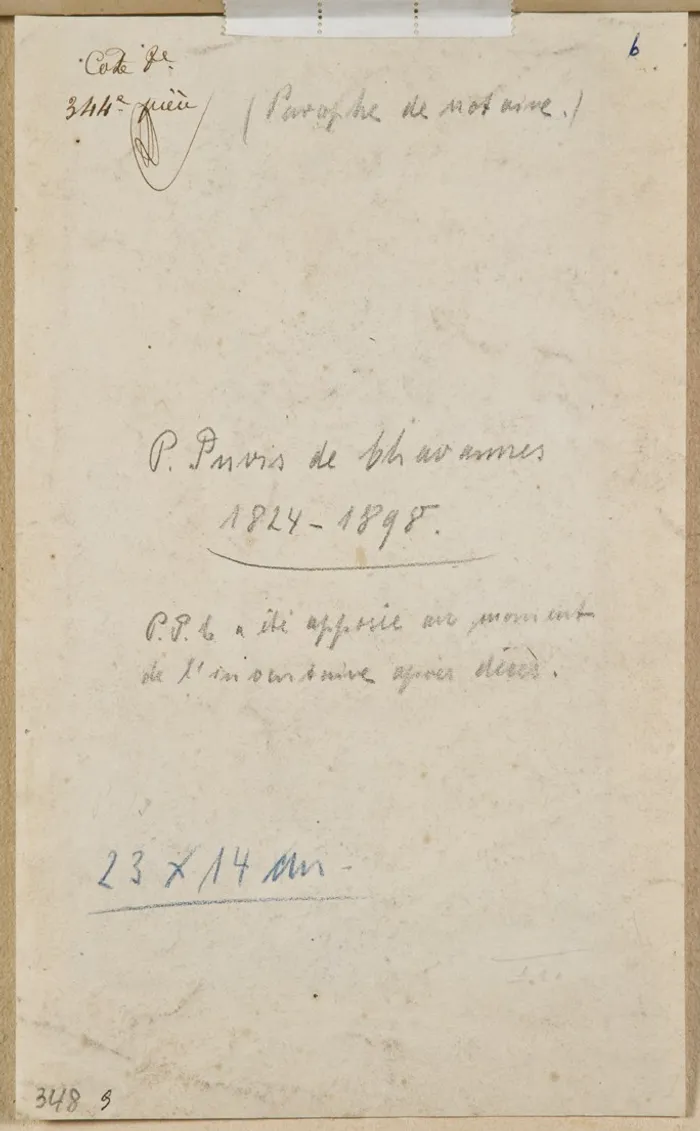 Cote 2e
6
344e pièce
(Paraphe de notaire.)
P. Puvis de Chavannes
1824 - 1898.
P.P.C a été apposée au moment
de l'inventaire après décès.
23 x 14 cm -
348 9